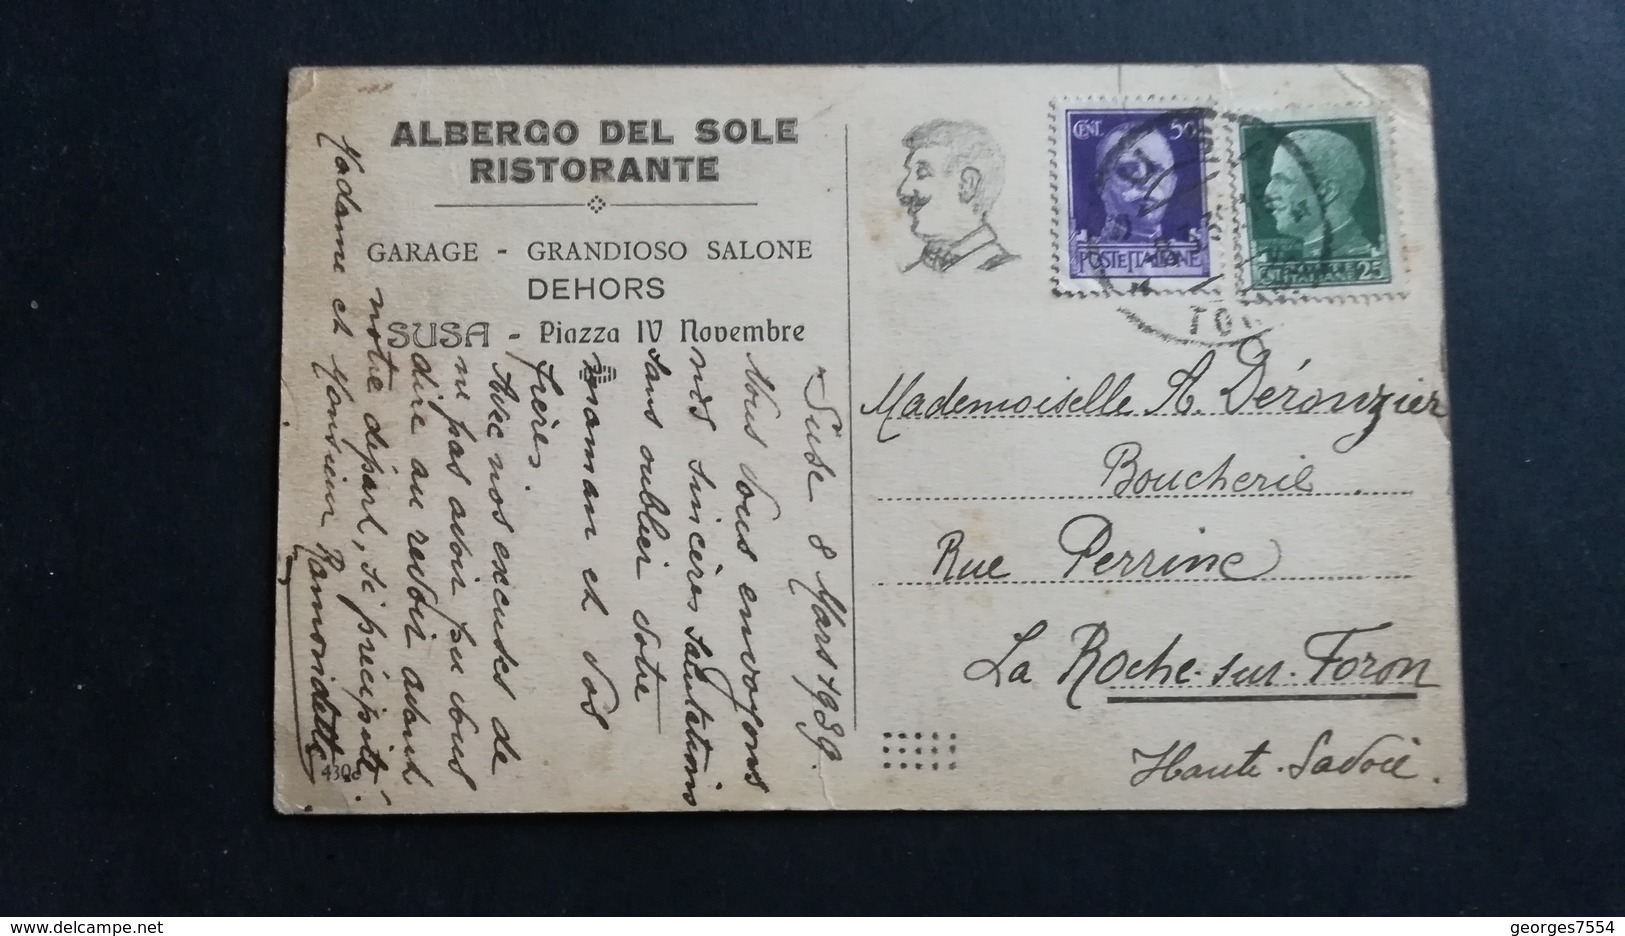 ALBERGO DEL SOLE
RISTORANTE
GARAGE - GRANDIOSO SALONE
DEHORS
SUSA - Piazza IV Novembre
Suse 8 Mars 1939.
Nous vous envoyons
nos sincères salutations
sans oublier votre
maman et vos
frères.
Avec nos excuses de
ne pas avoir pu vous
dire au revoir avant
notre départ, si précipité.
Madame et Monsieur Ramondetti
430c
CENT. 50
POSTE ITALIANE
25
TO
Mademoiselle A. Déronzier
Boucherie
Rue Perrine
La Roche-sur-Foron
Haute-Savoie.
delcampe.net
georges7554